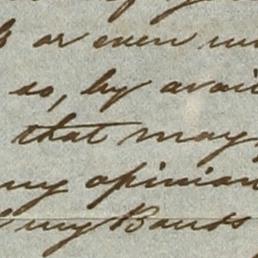 or even
so, by avai
that may
my opinion
my Bonds